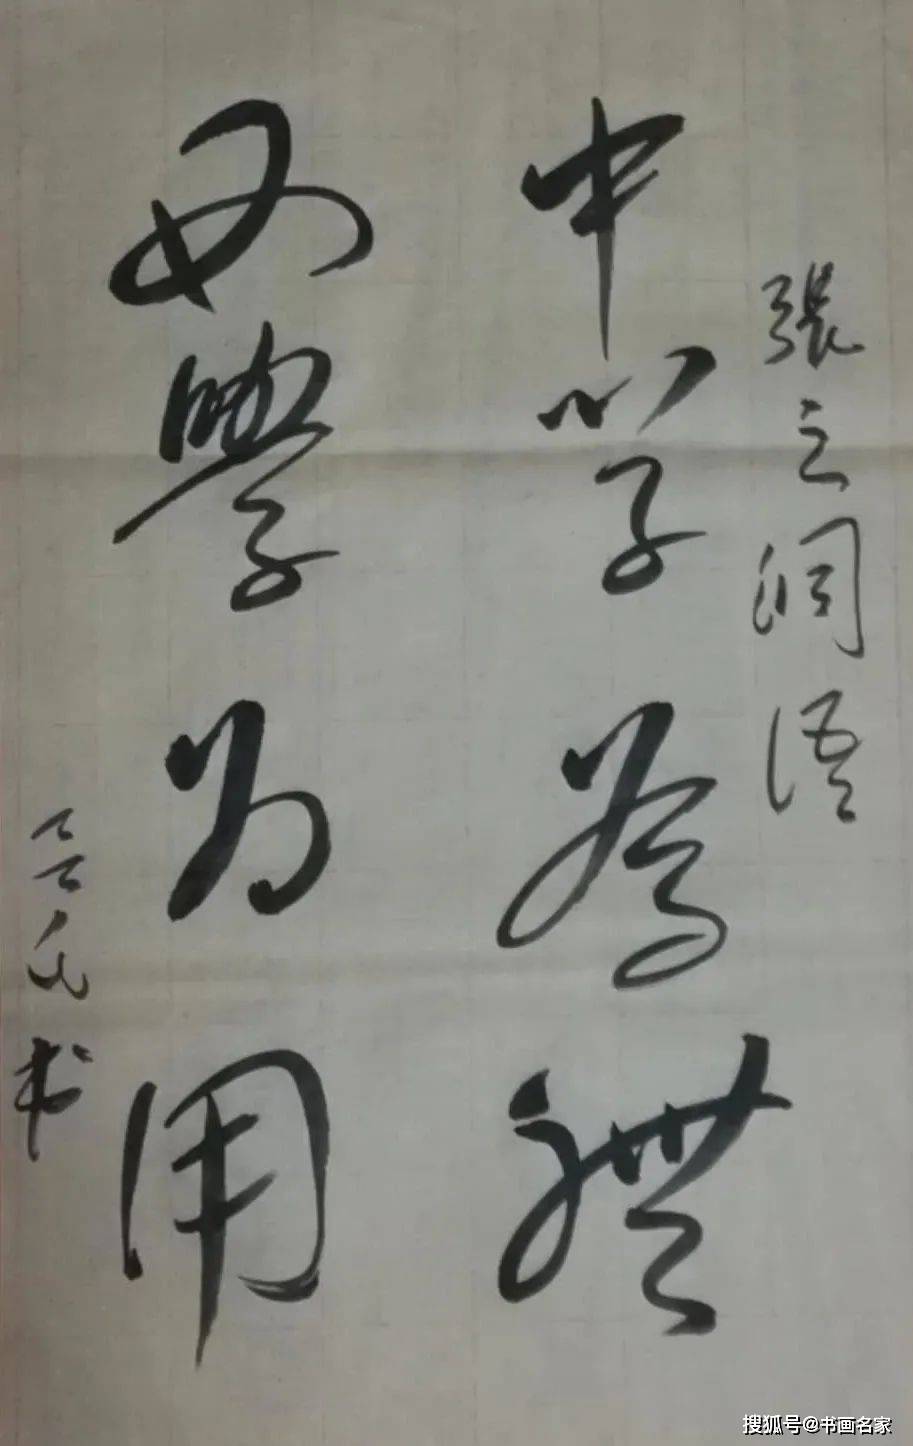 張之洞语
中学為體
西學为用
书
搜狐号@书画名家